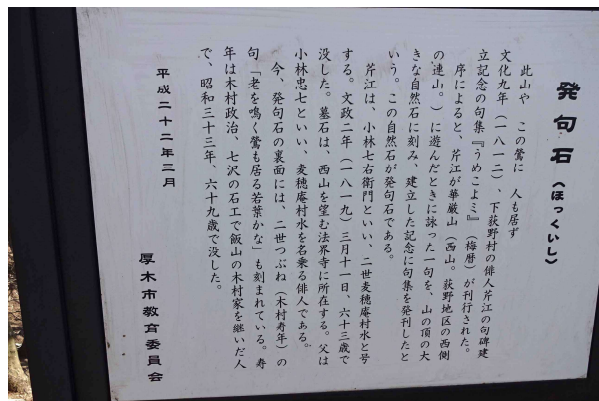 発句石（ほっくいし）
此山や この鶯に 人も居ず
文化九年（一八一二）、下荻野村の俳人芹江の句碑建
立記念の句集『うめこよミ』（梅暦）が刊行された。
序によると、芹江が華厳山（西山。荻野地区の西側
の連山。）に遊んだときに詠った一句を、山の頂の大
きな自然石に刻み、建立した記念に句集を発刊したと
いう。この自然石が発句石である。
芹江は、小林七右衛門といい、二世麦穂庵村水と号
する。文政二年（一八一九）三月十一日、六十三歳で
没した。墓石は、西山を望む法界寺に所在する。父は
小林忠七といい、麦穂庵村水を名乗る俳人である。
今、発句石の裏面には、二世つぶね（木村寿年）の
句「老を鳴く鶯も居る若葉かな」も刻まれている。寿
年は木村政治、七沢の石工で飯山の木村家を継いだ人
で、昭和三十三年、六十九歳で没した。
平成二十二年二月
厚木市教育委員会